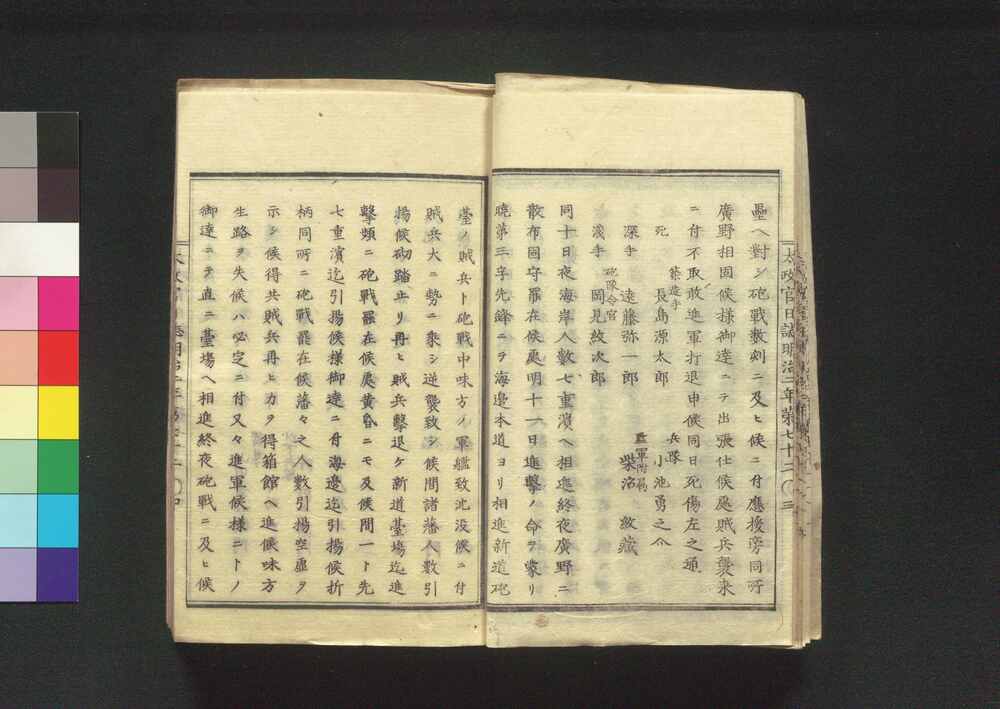 太政官日誌明治二年第七十二〇三
壘ヘ對シ砲戰數刻ニ及ヒ候ニ付應援旁同所
廣野相固候樣御達ニテ出張仕候處賊兵襲来
ニ付不取敢進軍打退申候同日死傷左之通
築造手
兵隊
死 長島源太郎 小池勇之介
砲隊令官
監軍附属
深手 遠藤弥一郎 柴沼 數藏
淺手 岡見紋次郎
同十日夜海岸人數七重濱ヘ相進終夜廣野ニ
散布固守罷在候處明十一日進擊ノ命ヲ蒙リ
曉第三字先鋒ニテ海邊本道ヨリ相進新道砲
臺ノ賊兵ト砲戰中味方ノ軍艦致沈没候ニ付
賊兵大ニ勢ニ乘シ逆襲致シ候間諸藩人數引
揚候砌踏止リ再ヒ賊兵擊退ケ新道臺塲迄進
擊頻ニ砲戰罷在候處黄昏ニモ及候間一ト先
七重濱迄引揚候樣御達ニ付海邊迄引揚候折
柄同所ニ砲戰罷在候藩々之人數引揚空虛ヲ
示シ候得共賊兵再ヒカヲ得箱館ヘ進候味方
生路ヲ失候ハ必定ニ付又々進軍候樣ニトノ
御達ニテ直ニ臺塲ヘ相進終夜砲戰ニ及ヒ候